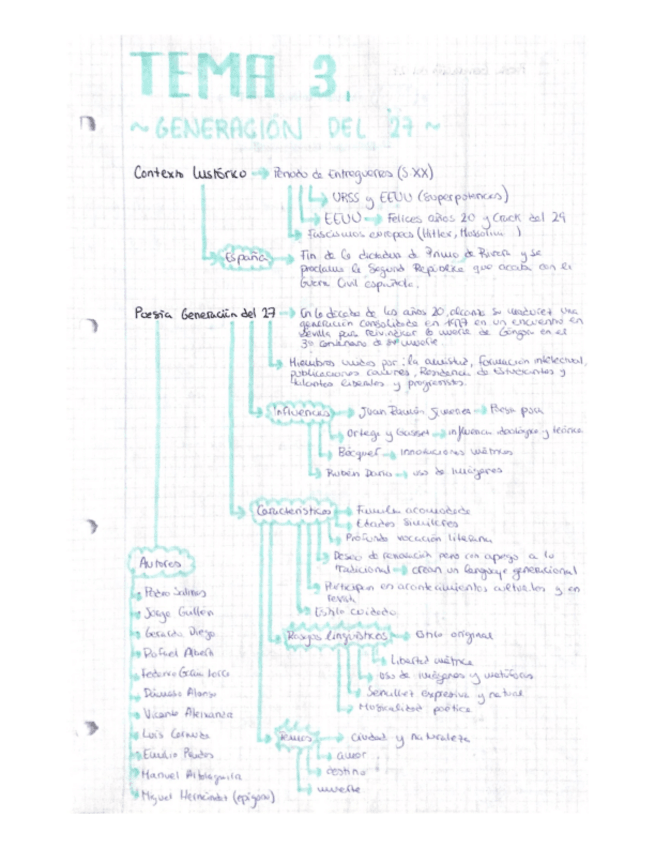 TEMA 3.
~ GENERACIÓN DEL 27 ~
Contexto histórico → Periodo de Entreguerras (S XX)
URSS y EEUU (Superpotencias)
EEUU → Felices años 20 y Crack del 29
Fascismos europeos (Hitler, Mussolini)
España → Fin de la dictadura de Primo de Rivera y se
proclama la Segunda República que acaba con la
Guerra Civil española.
Poesía Generación del 27 → En la década de los años 20, una
generación consolidada en 1927 en un encuentro en
Sevilla para reivindicar la muerte de Góngora en el
3er centenario de su muerte.
Miembros unidos por: la amistad, formación intelectual,
publicaciones comunes, Residencia de Estudiantes y
talantes liberales y progresistas.
Influencias → Juan Ramón Jiménez → Poesía pura
Ortega y Gasset → influencia ideológica y teórica
Bécquer → innovaciones métricas
Rubén Darío → uso de imágenes
Características → Familia acomodada
Edades similares
Profunda vocación literaria
Deseo de renovación pero con apego a lo
tradicional → crean un lenguaje generacional
Participan en acontecimientos culturales y en
revista
Estilo cuidado
Autores
Pedro Salinas
Jorge Guillén
Gerardo Diego
Rafael Alberti
Federico García Lorca
Dámaso Alonso
Vicente Aleixandre
Luis Cernuda
Emilio Prados
Manuel Altolaguirre
Miguel Hernández (epígono)
Rasgos lingüísticos → Estilo original
Libertad métrica
Uso de imágenes y metáforas
Sencillez expresiva y natural
Musicalidad poética
Temas → ciudad y naturaleza
amor
destino
muerte